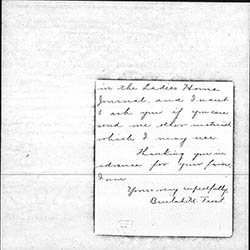 in the Ladies Home
Journal, and I want
to ask you if you can
send me other material
which I may use.
Thanking you in
advance for your favor,
I am
Yours very respectfully,
Beulah M.